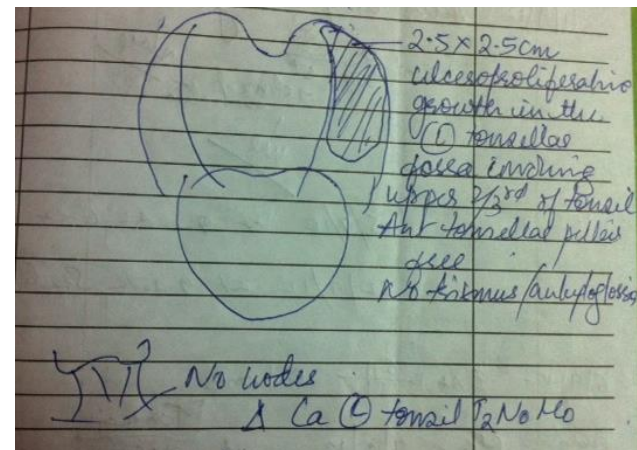 2.5 x 2.5cm
ulceroproliferative
growth in the
Ⓛ tonsillar
fossa involving
upper 2/3rd of tonsil
Ant tonsillar pillar
free
No trismus/ankyloglossia
No nodes
Δ Ca Ⓛ tonsil T2N0M0